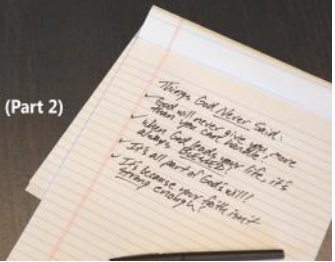 (Part 2)
Things God Never Said:
✓ God will never give you more
than you can handle!
✓ When God leads your life, it's
always BLESSED!
✓ It's all part of God's will?
✓ It's because your faith isn't
strong enough?